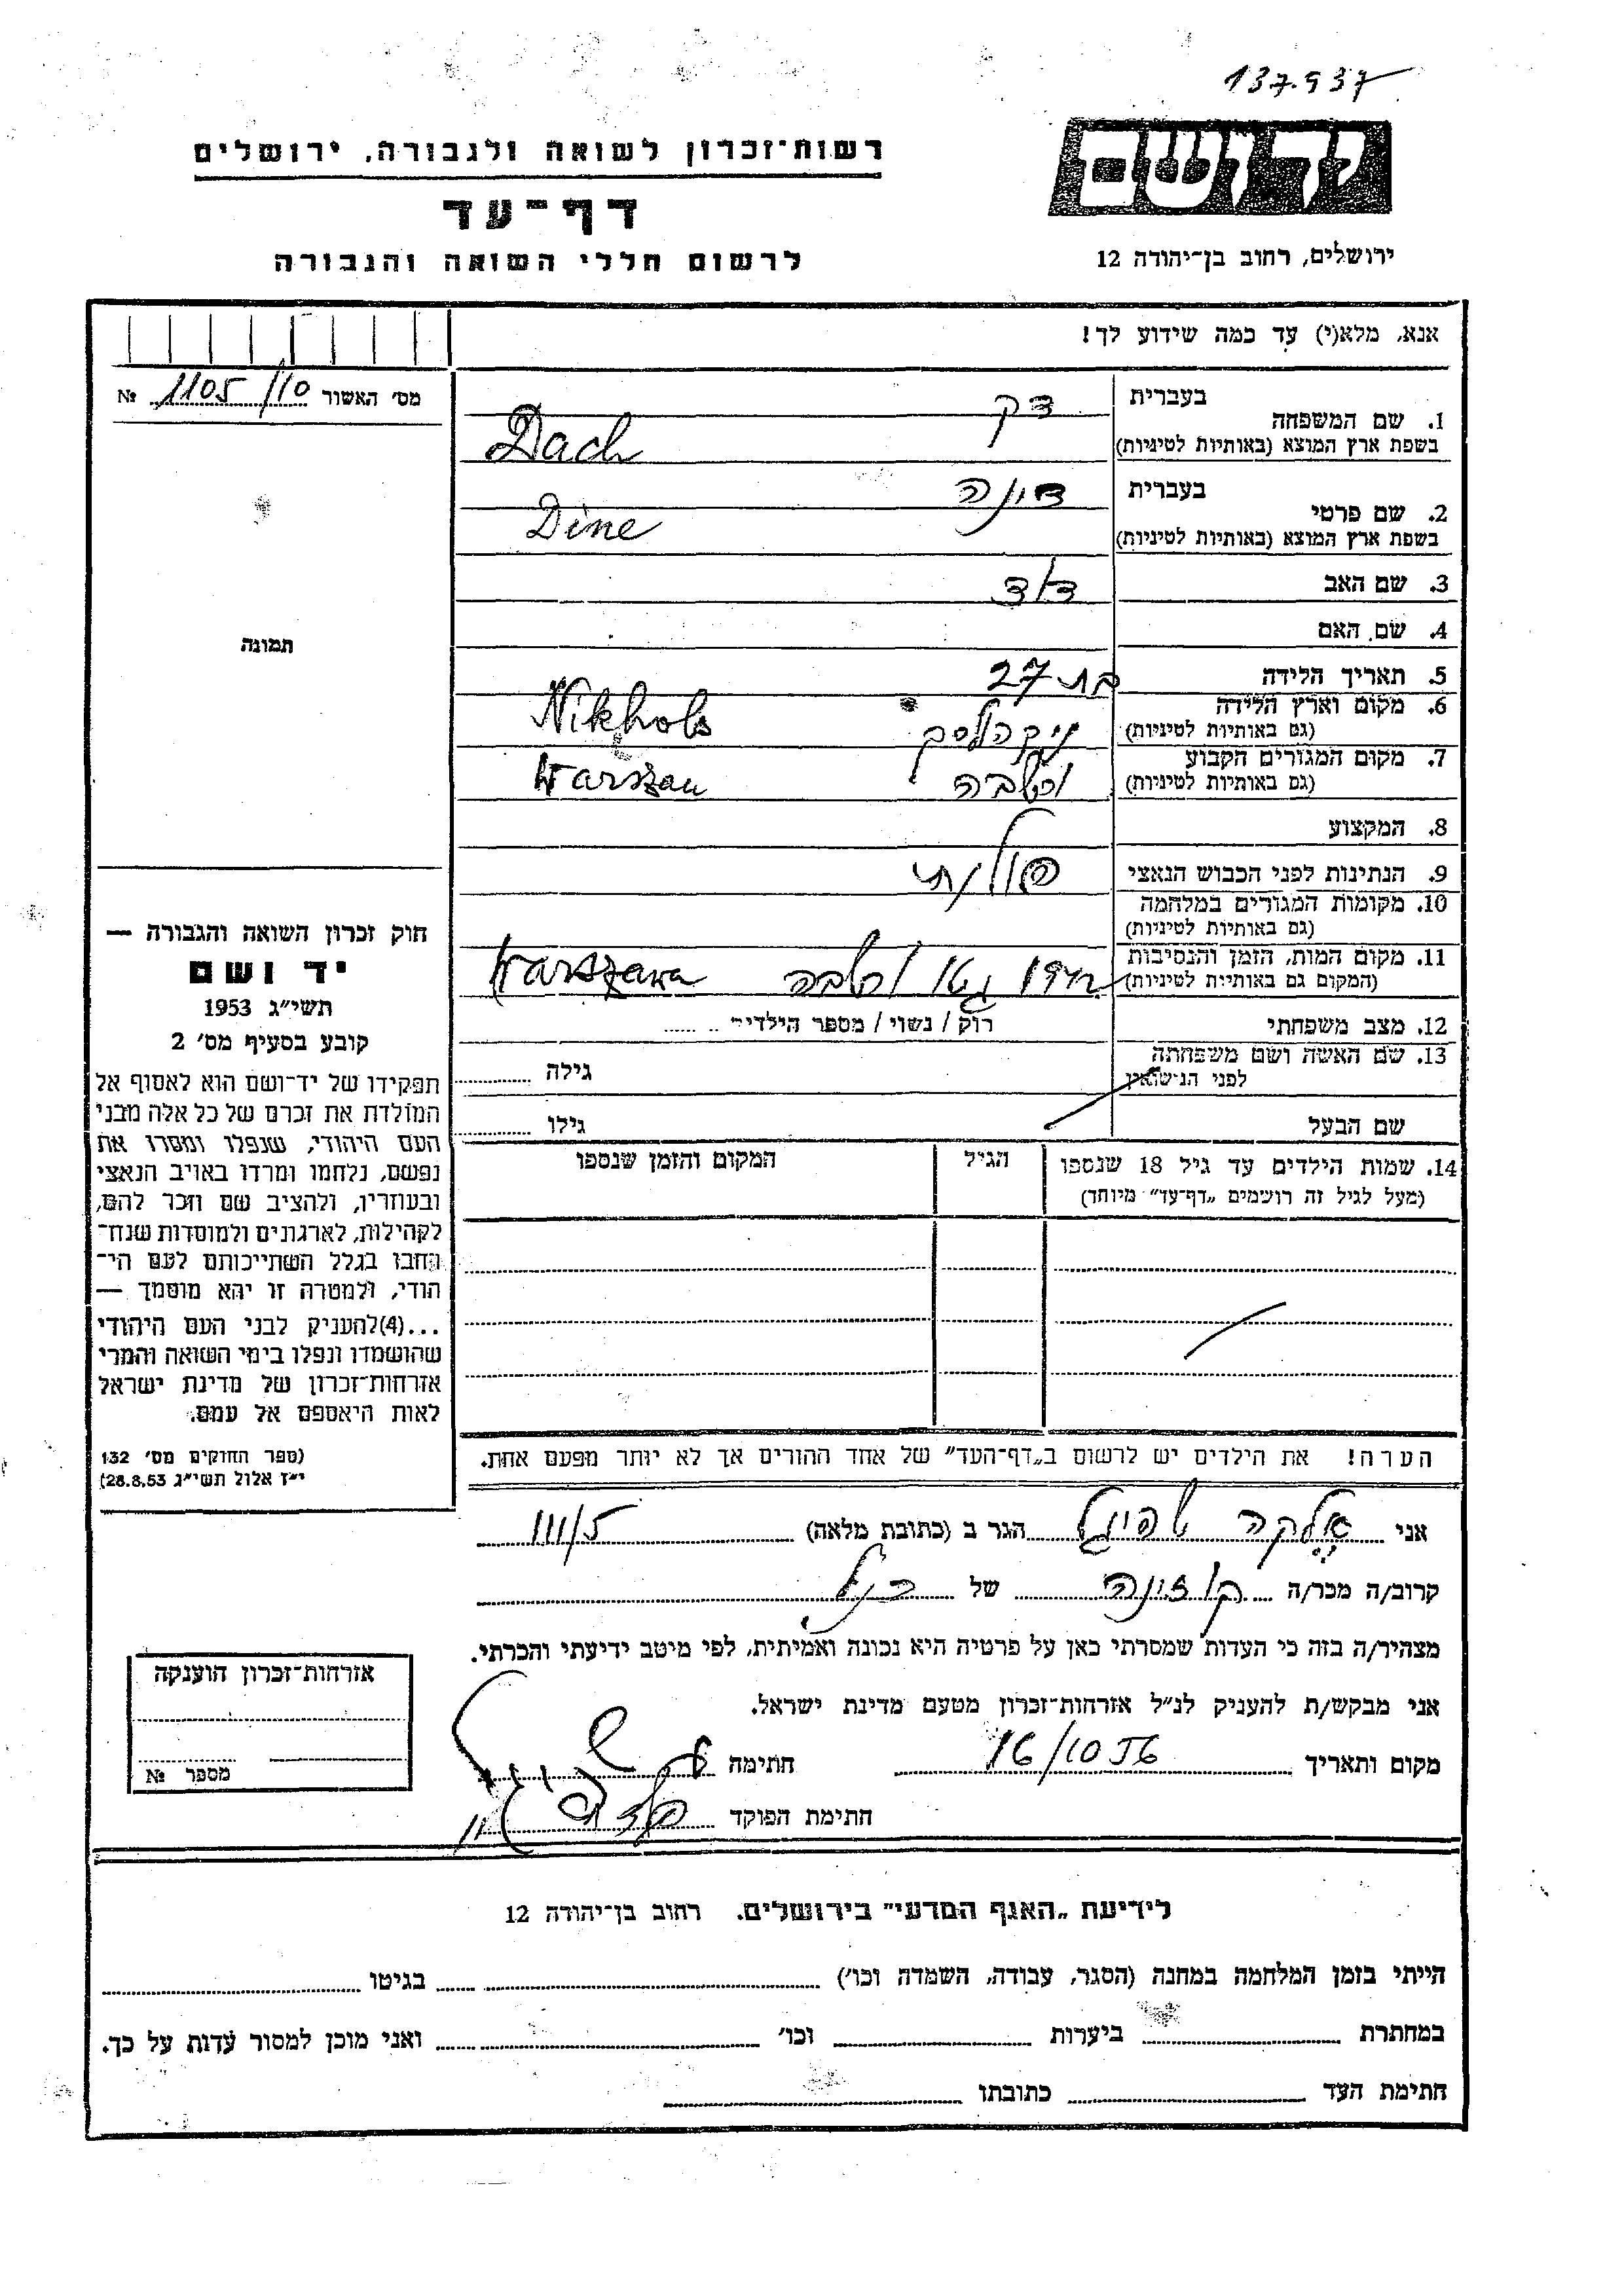 137.937
רשות־זכרון לשואה ולגבורה, ירושלים
יד ושם
דף־עד
לרשום חללי השואה והגבורה
ירושלים, רחוב בן־יהודה 12
אנא, מלא(י) עד כמה שידוע לך!
מס׳ האשור 1105/10 №
1. שם המשפחה
בעברית דק
בשפת ארץ המוצא (באותיות לטיניות) Dach
2. שם פרטי
בעברית דינה
בשפת ארץ המוצא (באותיות לטיניות) Dine
3. שם האב דוד
4. שם האם
5. תאריך הלידה בת 27
6. מקום וארץ הלידה
(גם באותיות לטיניות) Nikhols
7. מקום המגורים הקבוע
(גם באותיות לטיניות) ורשבה Warszau
8. המקצוע
9. הנתינות לפני הכבוש הנאצי פולנית
10. מקומות המגורים במלחמה
(גם באותיות לטיניות)
11. מקום המות, הזמן והנסיבות
(המקום גם באותיות לטיניות) גטו ורשבה Warszawa
12. מצב משפחתי רוק / נשוי / מספר הילדים
13. שם האשה ושם משפחתה
לפני הנישואין גילה
שם הבעל גילו
14. שמות הילדים עד גיל 18 שנספו
(מעל לגיל זה רושמים „דף־עד” מיוחד)
הגיל
המקום והזמן שנספו
הערה! את הילדים יש לרשום ב„דף־העד” של אחד ההורים אך לא יותר מפעם אחת.
תמונה
חוק זכרון השואה והגבורה —
יד ושם
תשי״ג 1953
קובע בסעיף מס׳ 2
תפקידו של יד־ושם הוא לאסוף אל
המולדת את זכרם של כל אלה מבני
העם היהודי, שנפלו ומסרו את
נפשם, נלחמו ומרדו באויב הנאצי
ובעוזריו, ולהציב שם וזכר להם,
לקהילות, לארגונים ולמוסדות שנח־
רבו בגלל השתייכותם לעם הי־
הודי, ולמטרה זו יהא מוסמך —
...(4)להעניק לבני העם היהודי
שהושמדו ונפלו בימי השואה והמרי
אזרחות־זכרון של מדינת ישראל
לאות היאספם אל עמם.
(ספר החוקים מס׳ 132
י״ז אלול תשי״ג 28.8.53)
אני אלקה שפיגל הגר ב (כתובת מלאה) 5/III
קרוב/ה מכר/ה קוזונה של הנ״ל
מצהיר/ה בזה כי העדות שמסרתי כאן על פרטיה היא נכונה ואמיתית, לפי מיטב ידיעתי והכרתי.
אני מבקש/ת להעניק לנ״ל אזרחות־זכרון מטעם מדינת ישראל.
מקום ותאריך 16/10 56 חתימה
חתימת הפוקד
אזרחות־זכרון הוענקה
מספר №
לידיעת „האגף המדעי” בירושלים. רחוב בן־יהודה 12
הייתי בזמן המלחמה במחנה (הסגר, עבודה, השמדה וכו׳) בגיטו
במחתרת ביערות וכו׳ ואני מוכן למסור עדות על כך.
חתימת העד כתובתו